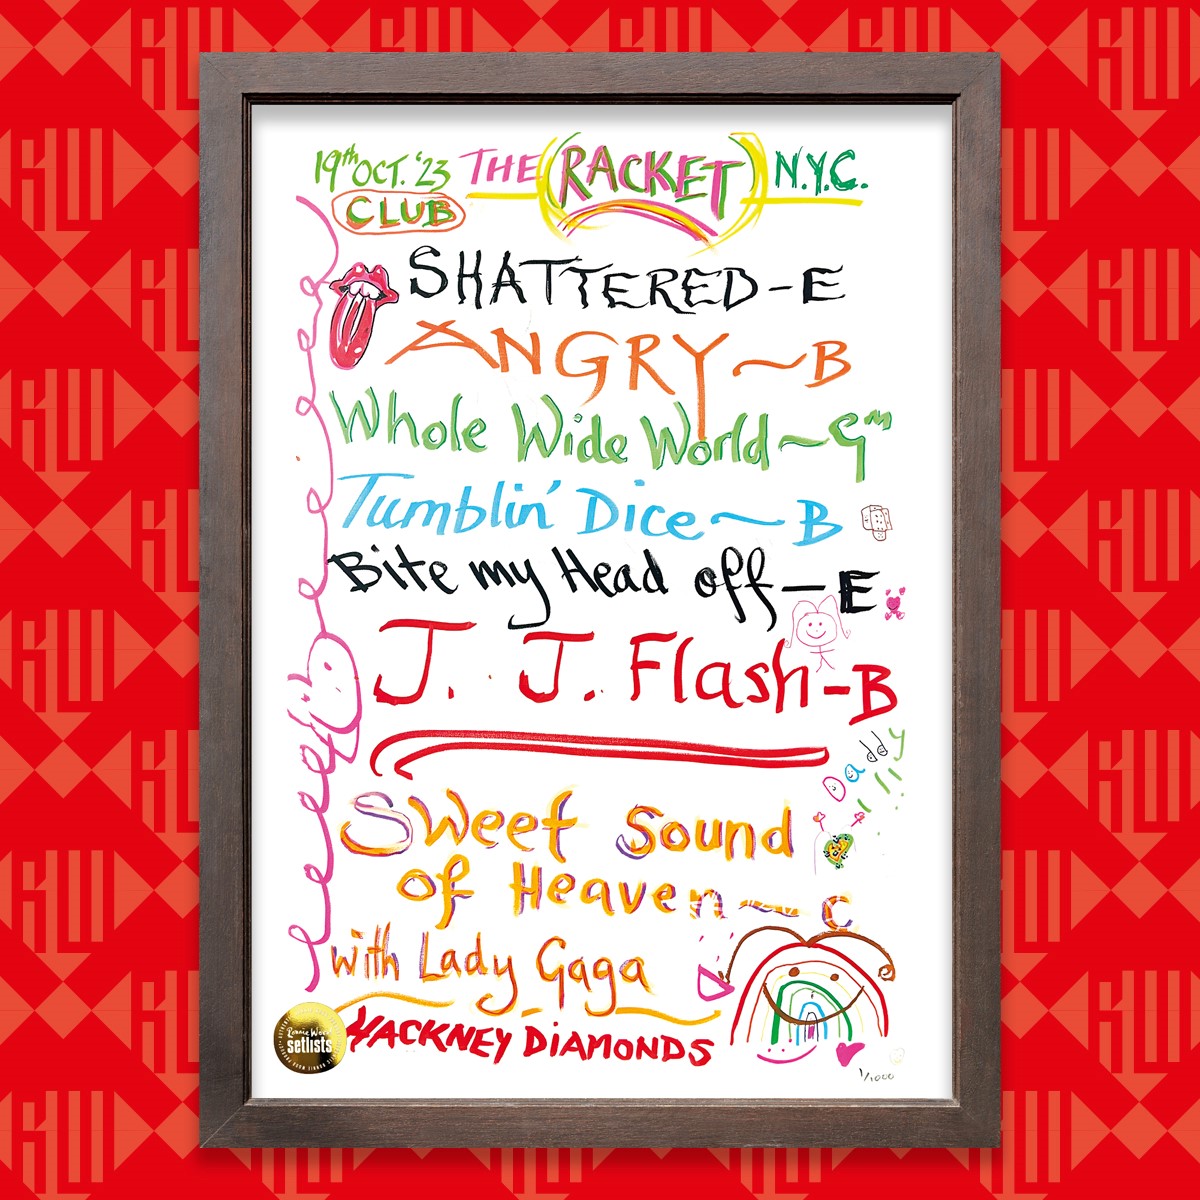 19th OCT. '23 THE (RACKET) N.Y.C.
CLUB
SHATTERED - E
ANGRY ~ B
Whole Wide World ~ Gm
Tumblin' Dice ~ B
Bite my Head off — E
J. J. Flash - B
Daddy
Sweet Sound
of Heaven ~ C
with Lady Gaga
HACKNEY DIAMONDS
Ronnie Wood
setlists
1/1000